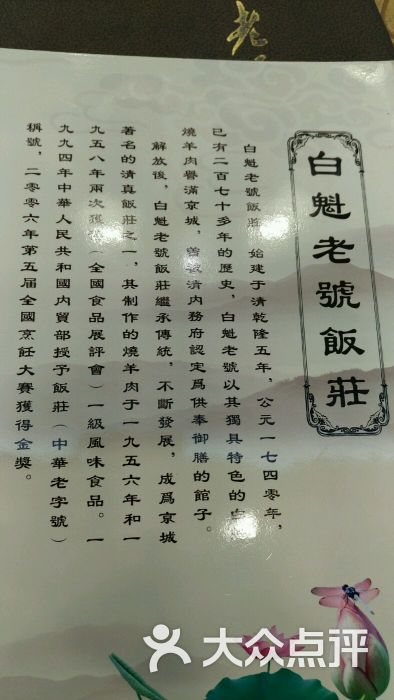 老
白魁老號飯莊
白魁老號飯莊，始建于清乾隆五年，公元一七四零年，
已有二百七十多年的歷史，白魁老號以其獨具特色的白
燒羊肉譽滿京城，曾被清内務府認定爲供奉御膳的館子。
解放後，白魁老號飯莊繼承傳統，不斷發展，成爲京城
著名的清真飯莊之一，其制作的燒羊肉于一九五六年和一
九五八年兩次獲（全國食品展評會）一級風味食品。一
九九四年中華人民共和國内貿部授予飯莊（中華老字號）
稱號，二零零六年第五届全國烹飪大賽獲得金獎。
大众点评